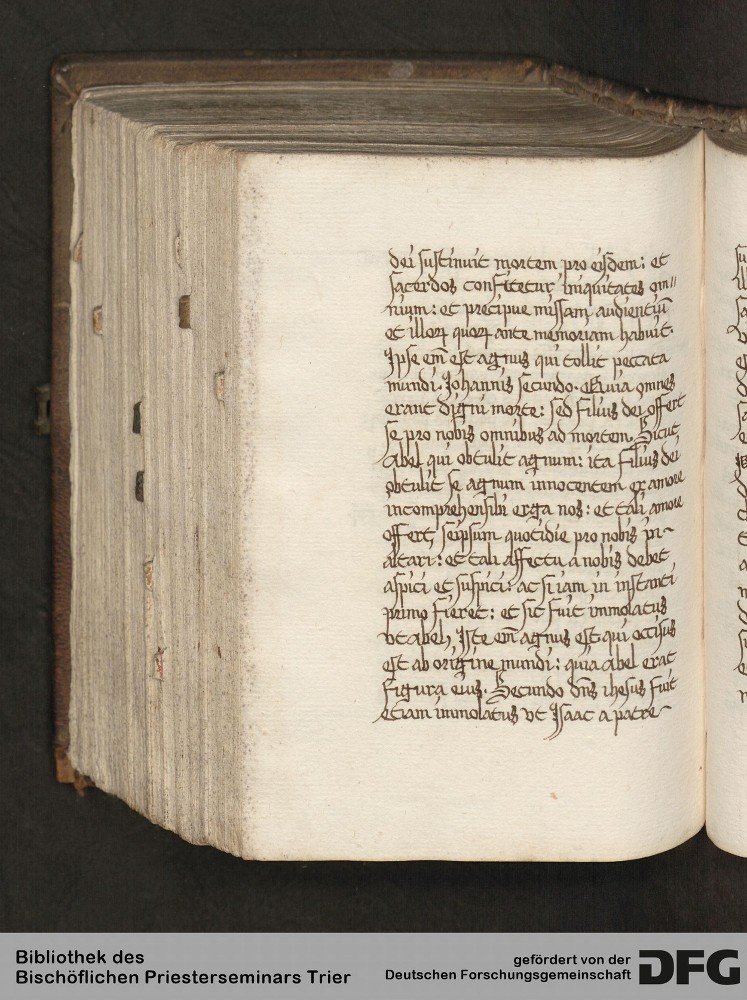 dei sustinuit mortem pro eisdem: et
sacerdos confitetur iniquitates om⸗
nium: et precipue missam audientiū
et illoꝝ quoꝝ ante memoriam habuit.
Ipse em̄ est agnus qui tollit peccata
mundi. Johannis secundo. Quia omnes
erant digni morte: sed filius dei offert
se pro nobis omnibus ad mortem. Sicut
Abel qui obtulit agnum: ita filius dei
obtulit se agnum innocentem ex amore
incomprehensibi erga nos: et tali amore
offert seipsum quotidie pro nobis in
altari: et tali affectu a nobis debet
aspici et suspici: ac si iam in instanti
primo fieret: et sic fuit immolatus
vt abel. Iste em̄ agnus est qui occisus
est ab origine mundi: quia Abel erat
figura eius. Secundo dn̄s ihesus fuit
etiam immolatus vt Isaac a patre
Bibliothek des
Bischöflichen Priesterseminars Trier
gefördert von der
Deutschen Forschungsgemeinschaft
DFG